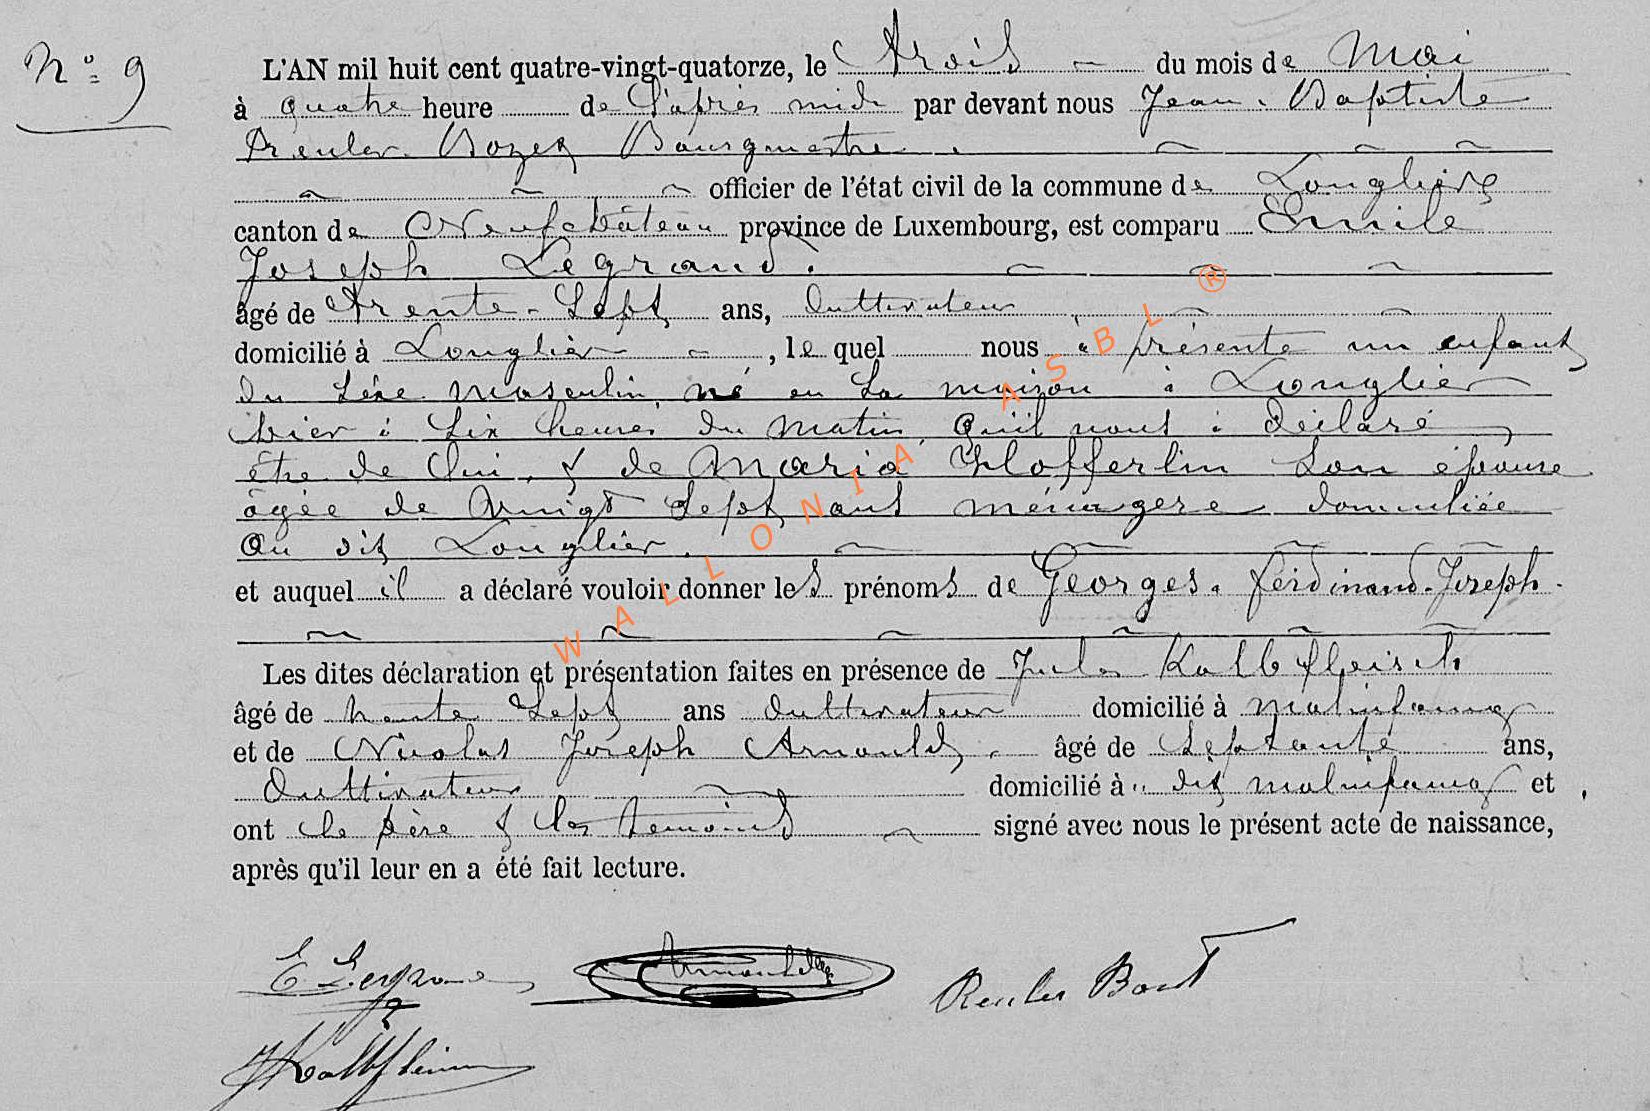 N° 9
L'AN mil huit cent quatre-vingt-quatorze, le trois du mois de Mai
à quatre heure de l'après midi par devant nous Jean-Baptiste
Reuler Bourgmestre.
officier de l'état civil de la commune de Longlier
canton de Neufchâteau province de Luxembourg, est comparu Emile
Joseph Legrand.
âgé de trente-sept ans, Cultivateur
domicilié à Longlier, le quel nous à présenté un enfant
du sexe masculin, né en sa maison à Longlier
hier à six heures du matin, qu'il nous à déclaré
être de lui, & de Maria son épouse
âgée de vingt sept ans ménagere domiciliée
au dit Longlier.
et auquel il a déclaré vouloir donner les prénoms de Georges-Ferdinand-Joseph.
Les dites déclaration et présentation faites en présence de Jules Kalbfleisch
âgé de trente sept ans Cultivateur domicilié à Molinfaing
et de Nicolas Joseph Arnould, âgé de septante ans,
Cultivateur domicilié à dit Molinfaing et
ont le père & les témoins signé avec nous le présent acte de naissance,
après qu'il leur en a été fait lecture.
E Legrand Arnould Reuler
J Kalbfleisch
WALLONIA ASBL ®